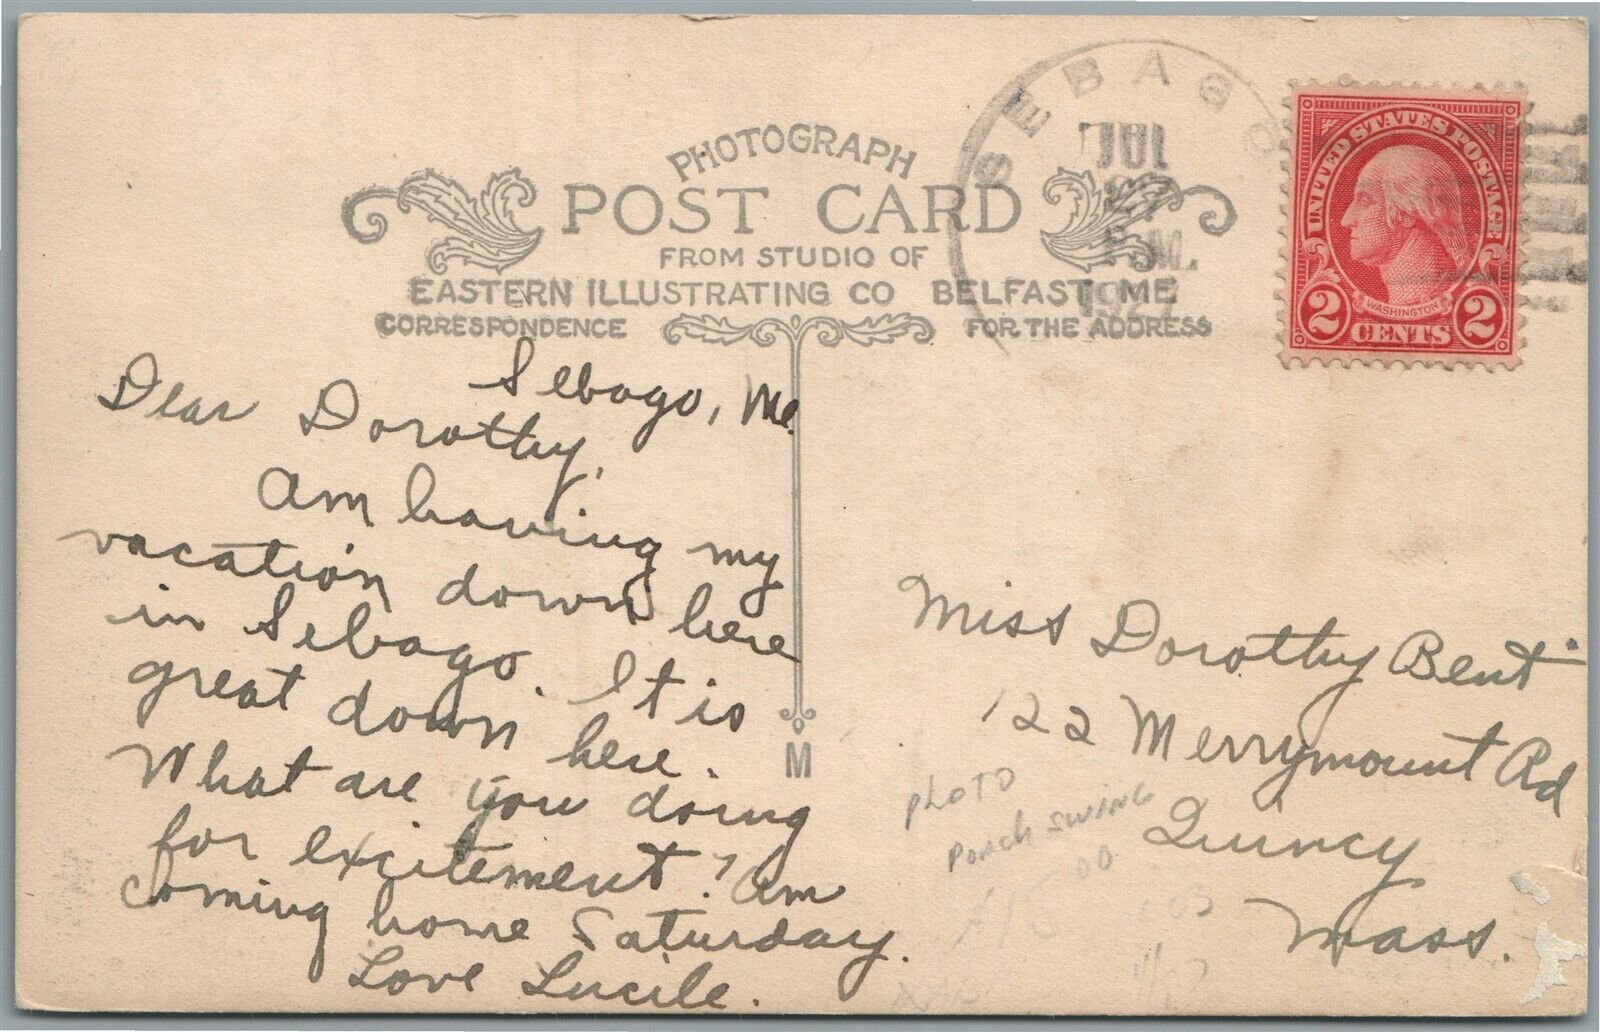 PHOTOGRAPH
POST CARD
FROM STUDIO OF
EASTERN ILLUSTRATING CO BELFAST, ME
CORRESPONDENCE
FOR THE ADDRESS
SEBAGO
JUL
27
M.
192
UNITED STATES POSTAGE
WASHINGTON
2 CENTS 2
Sebago, Me.
Dear Dorothy,
Am having my
vacation down here
in Sebago. It is
great down here.
What are you doing
for excitement? Am
coming home Saturday.
Love Lucile.
M
Miss Dorothy Bent
122 Merrymount Rd
Quincy
Mass.
PHOTO
PORCH SWING